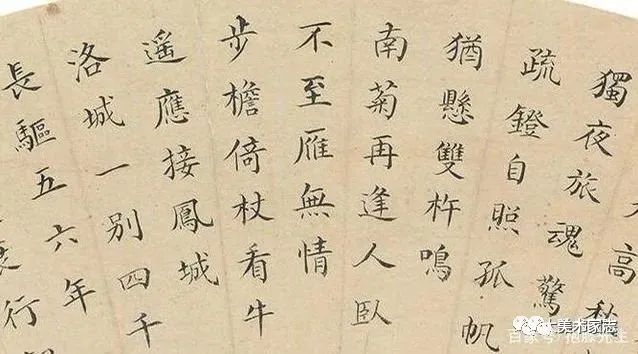 高秋
獨夜旅魂驚
疏鐙自照孤帆
猶懸雙杵鳴
南菊再逢人臥
不至雁無情
步檐倚杖看牛
遥應接鳳城
洛城一别四千
長驅五六年
衰行
大美术家志
百家号